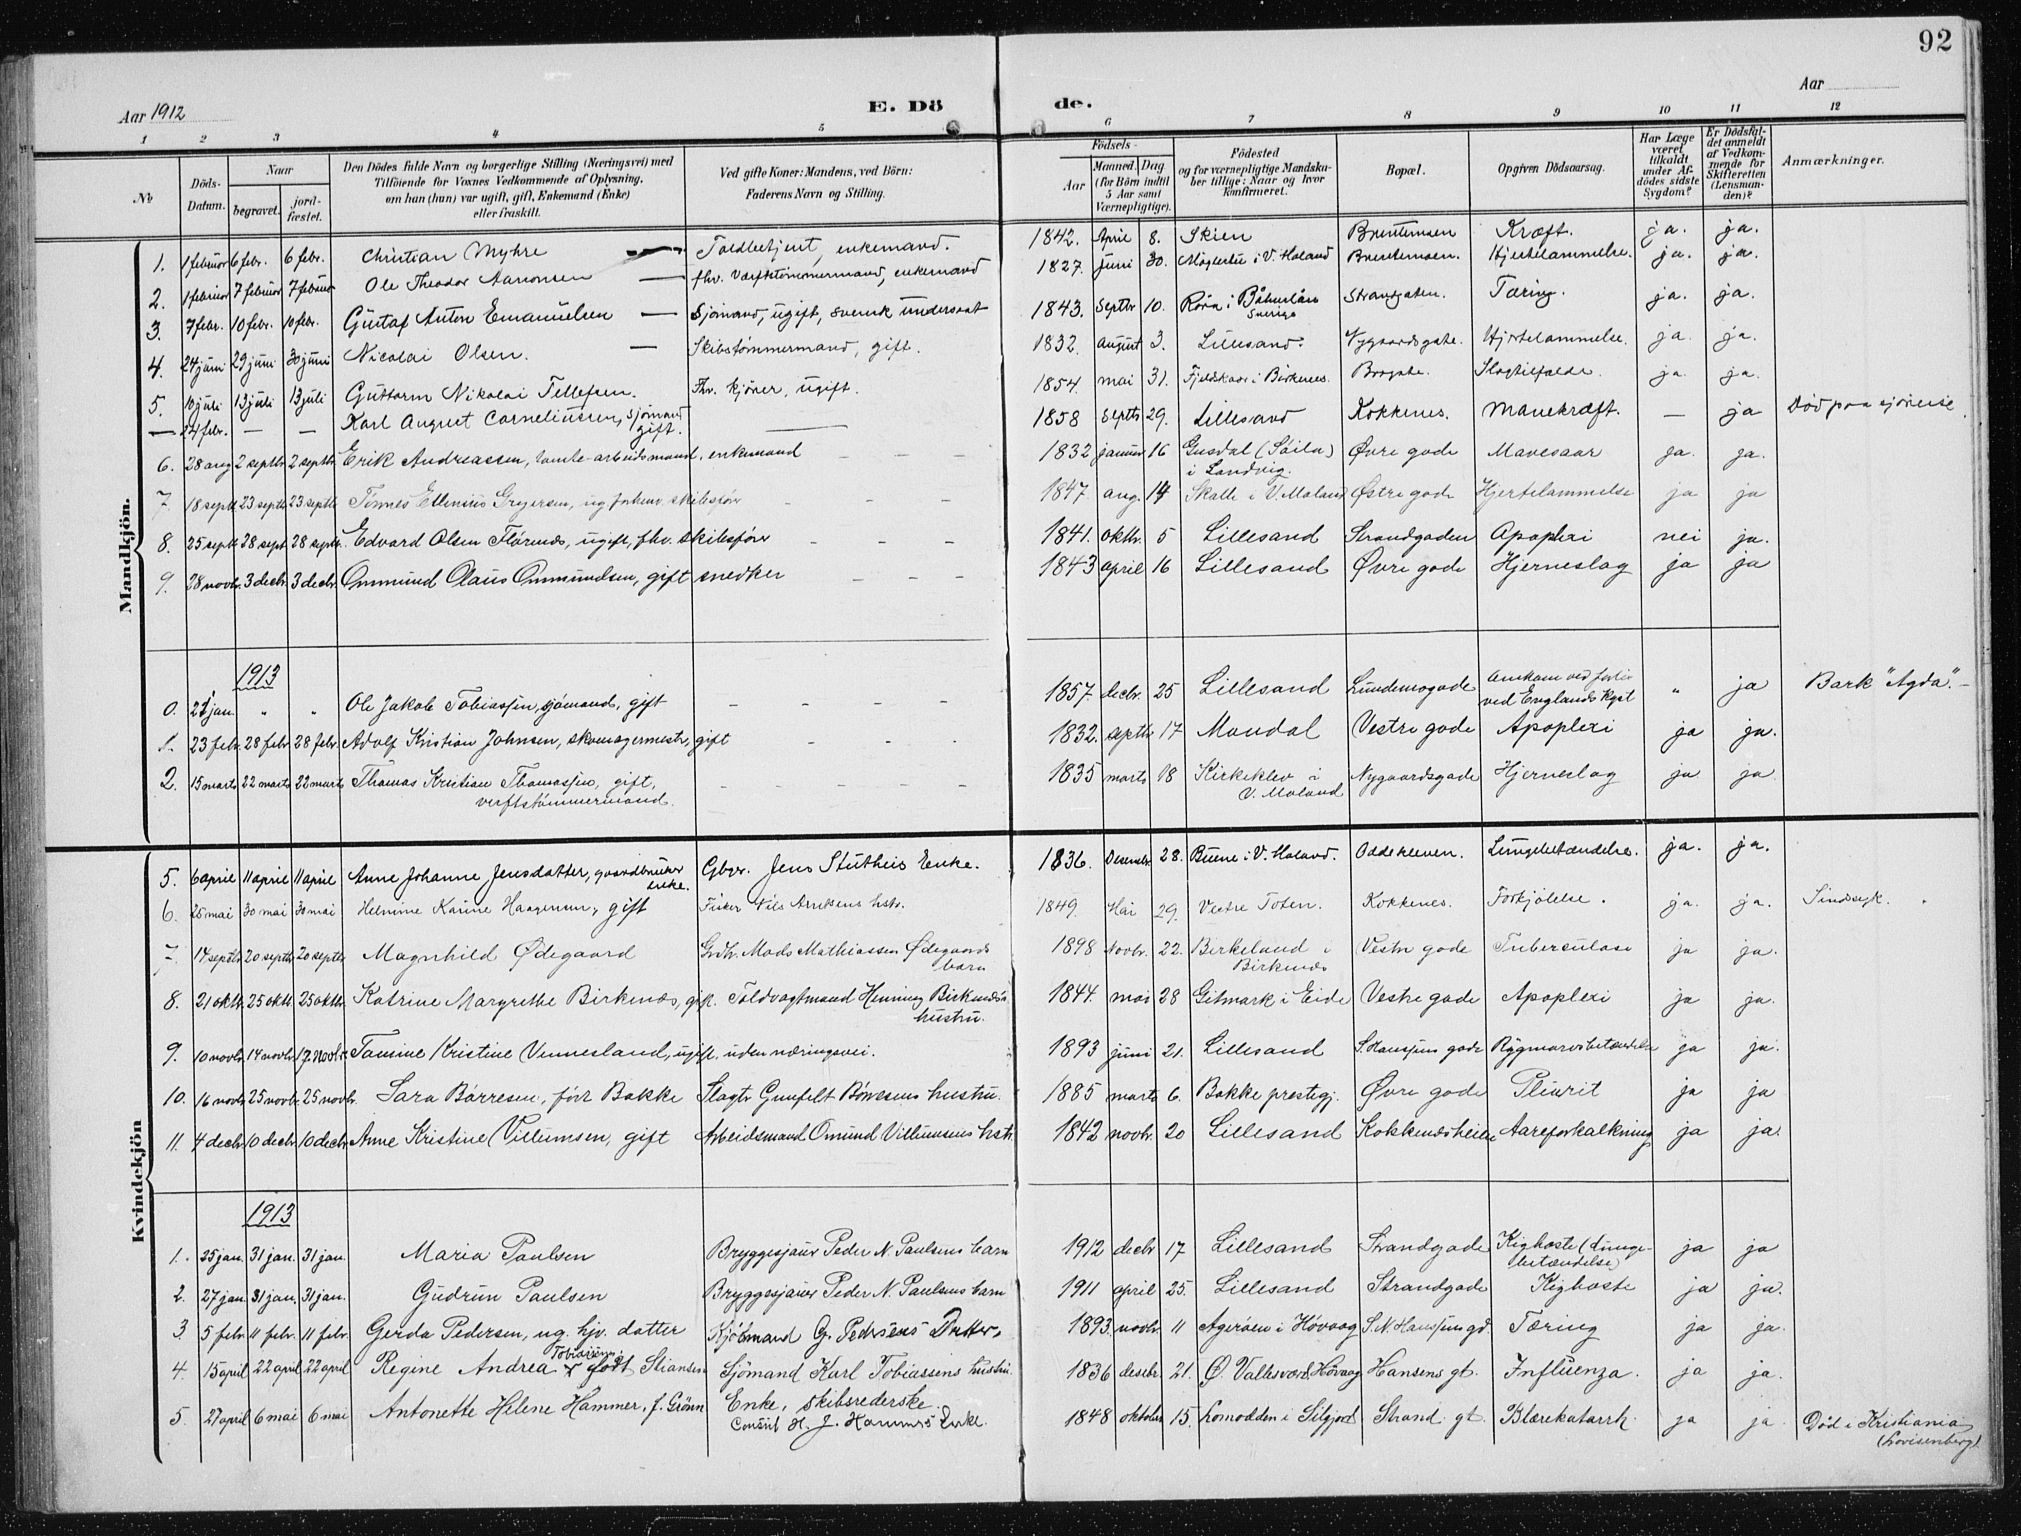 92
Aar 1912
E. Dö
de.
Aar
1 2 3 4 5 6 7 8 9 10 11 12
No
Döds-Datum.
Naar
begravet.
jord-fæstet.
Den Dödes fulde Navn og borgerlige Stilling (Næringsvei) med
Tilföiende for Voxnes Vedkommende af Oplysning,
om han (hun) var ugift, gift, Enkemand (Enke)
eller fraskilt.
Ved gifte Koner: Mandens, ved Börn:
Faderens Navn og Stilling.
Födsels-
Aar
Maaned. Dag
(for Börn indtil
5 Aar samt
Værnepligtige).
Födested
og for værnepligtige Mandska-
ber tillige: Naar og hvor
konfirmeret.
Bopæl.
Opgiven Dödsaarsag.
Har Læge
været
tilkaldt
under Af-
dödes sidste
Sygdom?
Er Dödsfal-
det anmeldt
af Vedkom-
mende for
Skifteretten
(Lensman-
den)?
Anmærkninger.
Mandkjön.
1. 1 februar 6 febr. 6 febr. Christian Myhre — Toldbetjent, enkemand. 1842. April 8. Skien Brentemoen Kræft. ja. ja.
2. 1 februar 7 februar 7 februar Ole Theodor Aanonsen — fhv. Værftstömmermand, enkemand 1827. juni 30. Møglestu i V. Moland Brentemoen. Hjertelammelse. ja. ja.
3. 7 febr. 10 febr. 10 febr. Gustaf Anton Emanuelsen — Sjömand, ugift, svensk undersaat 1843. Septbr 10. Røra i Båhuslän Sverige Strandgaten. Tæring. ja. ja.
4. 24 juni 29 juni 30 juni Nicolai Olsen. — Skibstømmermand, gift. 1832. August 3. Lillesand. Nygaardsgate. Hjertelammelse. ja. ja.
5. 10 juli 13 juli 13 juli Guttorm Nikolai Tellefsen. Fhv. kjører, ugift. 1854. mai 31. i Birkenes. Slagtilfælde. ja. ja.
— 24 febr. — — Karl August Corneliussen, sjömand gift. — 1858 Septbr 29. Lillesand Kokkenes. Mavekræft. — ja Död paa sjöreise.
6. 28 aug 2 septbr 2 septbr. Erik Andreassen, tomte-arbeidsmand, enkemand — — — 1832 januar 16 Gusdal (Søila) i Landvig. Øvre gade Mavesaar ja. ja.
7. 18 septbr 23 septbr 23 septbr Tønnes Ellenius Gregersen, ug forhenv. skibsfør — — — 1847. aug. 14 Skalle i V. Moland Østre gade Hjertelammelse ja ja
8. 25 septbr 28 sept. 28 septbr. Edvard Olsen Flørenæs, ugift, fhv. skibsfører — — — — 1841. oktbr. 5 Lillesand Strandgaden Apoplexi nei ja.
9. 28 novbr. 3 decbr. 3 decbr. Ommund Olaus Ommundsen, gift snedker — — — 1843 april 16 Lillesand Øvre gade Hjerneslag ja ja
1913
0. 21 jan. " " Ole Jakob Tobiassen, sjömand, gift — — — — 1857. decbr. 25 Lillesand Lundemogade Omkom ved forlis ved Englands kyst " ja Bark "Agda". —
1. 23 febr. 28 febr 28 febr. Adolf Kristian Johnsen, skomagermestr, gift — — — 1832. septbr. 17 Mandal Vestre gade Apoplexi ja ja.
2. 15 marts 22 marts 22 marts Thomas Kristian Thomassen, gift, verftstømmermand. — — — — — 1835 marts 18 Kirkeklev i V. Moland Nygaardsgade Hjerneslag ja ja.
Kvindekjön
5. 6 april 11 april 11 april Anne Johanne Jensdatter, gaardbruker enke. Gbgr. Jens Stutheis Enke. 1836. Desember 28. i V. Moland. Oddekleven. Lungebetændelse. ja. ja.
6. 25 mai 30 mai 30 mai Helmine Karine Haagensen, gift Fisker Nils Arntsens hstr. 1849. Mai 29. Vestre Toten. Kokkenes. Forkjölelse. ja. ja. Sindssyk.
7. 14 septbr 20 septbr 20 septbr Magnhild Ødegaard Grdbr. Mads Mathiassen Ødegaards barn 1898 Novbr. 22. Birkeland i Birkenæs Vestre gade Tuberculose ja ja.
8. 21 oktbr. 25 oktbr. 25 oktbr. Katrine Margrethe Birkenæs, gift. Toldvagtmand Henning Birkenæs's hustru. 1844. mai 28 Gitmark i Eide Vestre gade Apoplexi ja ja.
9. 10 novbr. 14 novbr. 17. Novbr. Tomine Kristine Vennesland, ugift, uden næringsvei. 1893 juni 21. Lillesand S. Hanssens gade Rygmarvsbetændelse ja ja.
10. 16 novbr. 25 novbr. 25 novbr. Sara Børresen, født Bakke Slagter Gunfelt Børresens hustru. 1885 marts 6. Bakke prestegj. Øvre gade Pleurit ja ja
11. 4 decbr. 10 decbr. 10 decbr. Anne Kristine Villumsen, gift Arbeidsmand Omund Villumsens hstr. 1842 novbr. 20 Lillesand Kokkenæsheien Aareforkalkning ja ja.
1913
1. 25 jan. 31 jan. 31 jan. Maria Paulsen Bryggesjauer Peder N. Paulsens barn 1912 decbr 17 Lillesand Strandgade Kighoste (Lunge-betændelse) ja ja
2. 27 jan. 31 jan. 31 jan. Gudrun Paulsen Bryggesjauer Peder N. Paulsens barn 1911 april 25. Lillesand Strandgade Kighoste ja ja.
3. 5 febr. 11 febr. 11 febr. Gerda Pedersen, ug. hjv. datter Kjöbmand G. Pedersens Datter. 1893. novbr. 11 Agerøen i Høvaag S. N. Hanssens gd. Tæring ja ja.
4. 15 april 22 april 22 april Regine Andrea Tobiassen födt Stiansen Sjömand Karl Tobiassens hustru. 1836 desebr. 21. Ø. Vallesværd, Høvaag Hansens gt. Influenza. ja ja.
5. 27 april 6 mai 6 mai Antonette Helene Hammer, f. Grönn Enke, skibsrederske. Consul H. J. Hammers Enke. 1848 oktober 15. Lomodden i Siljord Strand. gt. Blærekatarrh. ja ja. Död i Kristiania (Lovisenberg)